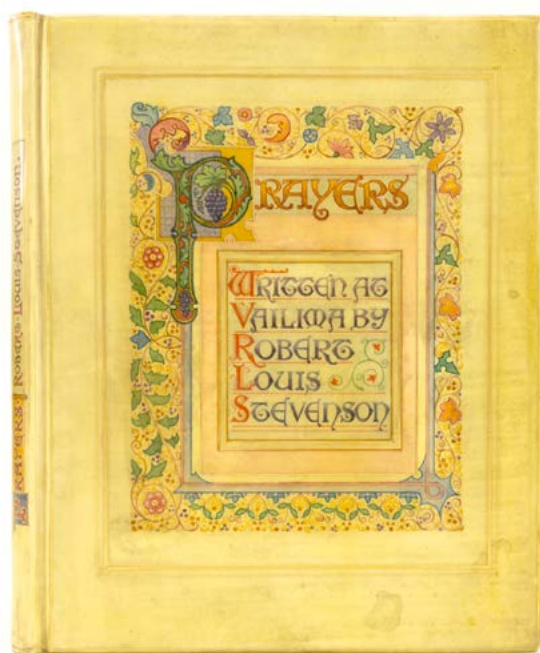 PRAYERS
WRITTEN AT
VAILIMA BY
ROBERT
LOUIS
STEVENSON
PRAYERS · ROBERT · LOUIS · STEVENSON ·